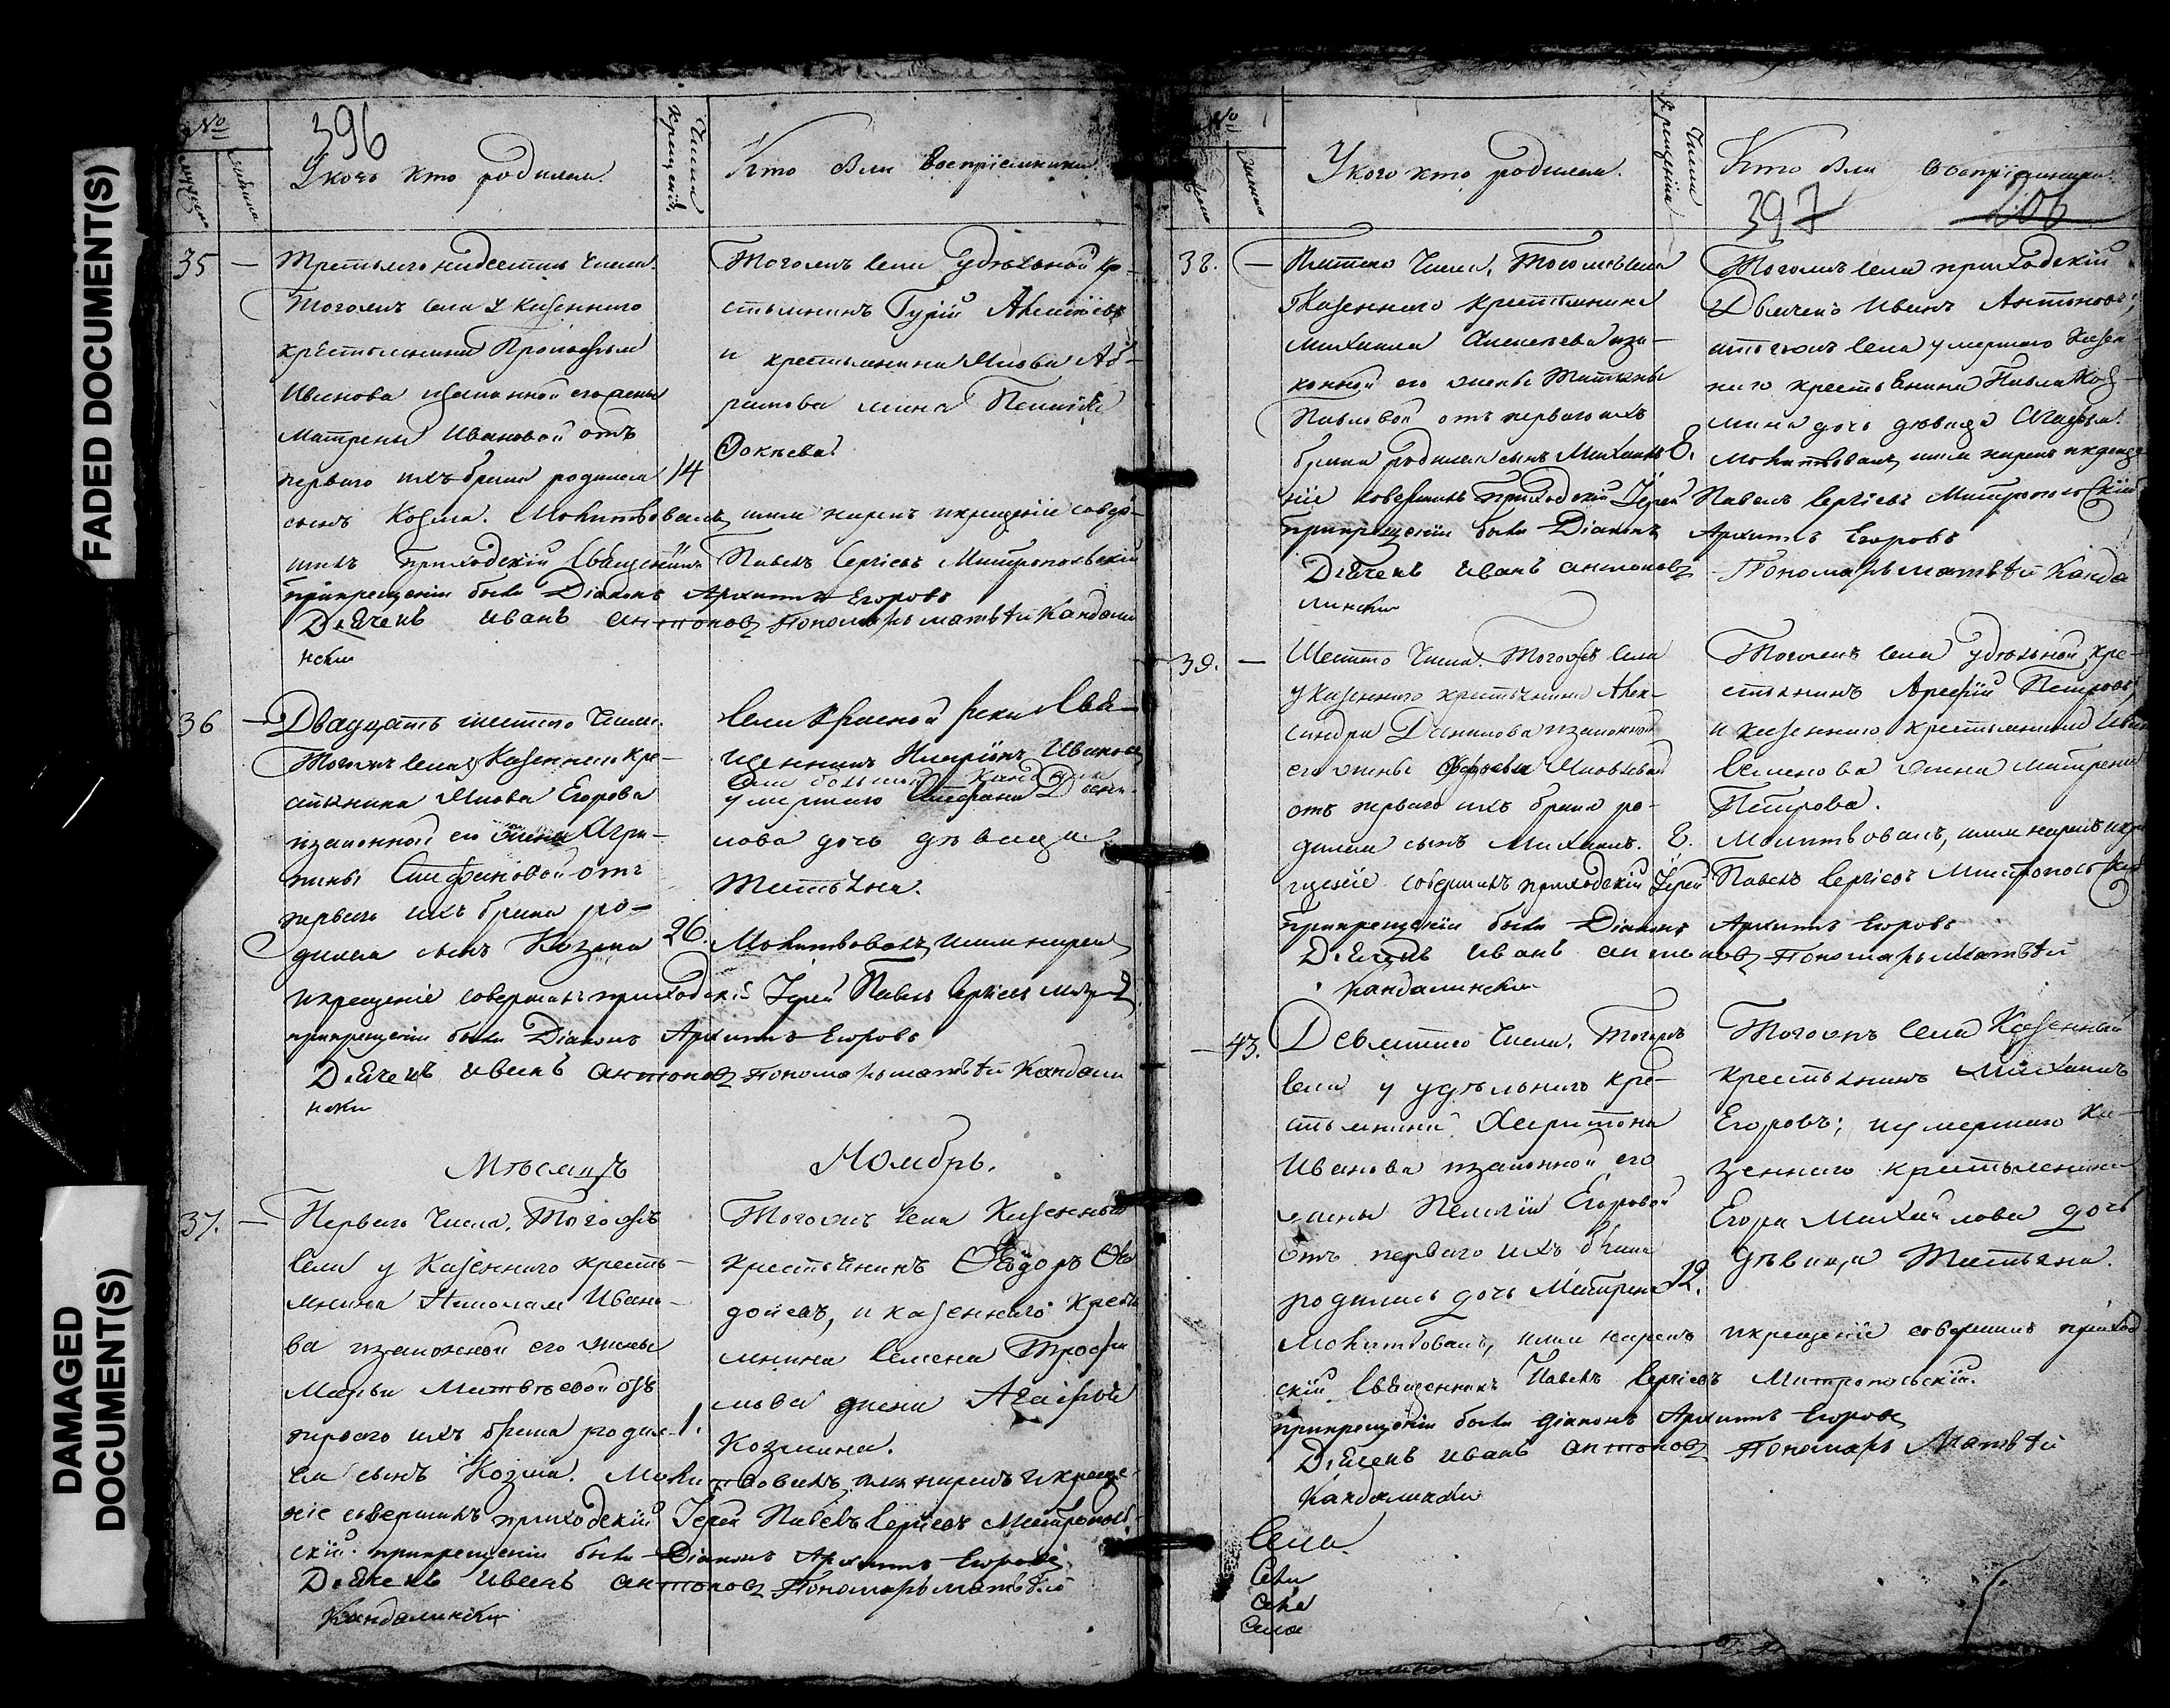 FADED DOCUMENT(S)
DAMAGED
DOCUMENT(S)
№
396
У кого кто родился.
Числа
крещенія
Кто были воспріемники.
35 — Третьяго надесять числа.
Тогожъ села у казеннаго
крестьянина
Иванова изаконной его жены
Матрены Ивановой отъ
перваго ихъ брака родился 14
сынъ Козма.
Тогожъ села удѣльной кре-
стьянинъ Гурій
и крестьянина Якова
жена
Фокиева.
Молитвовалъ, имя нарекъ икрещеніе совер-
шилъ приходскій Священникъ Павелъ Сергіевъ Митропольскій
прикрещеніи были Діаконъ Архипъ Егоровъ
Дьячекъ Иванъ Антоновъ Пономарь Матвѣй Кандалин
ски
36 — Двадцать шестаго числа.
Тогожъ села у казеннаго кре-
стьянина Якова Егорова
изаконной его жены Агри-
пины Стефановой отъ
перваго ихъ брака ро-
дился сынъ Козма 26.
Села Красной реки Свя-
щенникъ Иванов
умершаго Стефана
лова дочь дѣвица
Татьяна.
Молитвовалъ, имя нарекъ
икрещеніе совершилъ приходскій Іерей Павелъ Сергіевъ
прикрещеніи были Діаконъ Архипъ Егоровъ
Дьячекъ Иванъ Антоновъ Пономарь Матвѣй Кандалин
ски
Мѣсяцъ Ноябрь.
37. — Перваго числа. Тогожъ
села у казеннаго кресть-
янина Николая Ивано-
ва изаконной его жены
Марьи Матвѣевой отъ
перваго ихъ брака родил- 1.
ся сынъ Козма.
Тогожъ села Казенный
крестьянинъ Ѳедоръ
и казеннаго кресть
янина Семена Трофи
мова жена Агафья
Козмина.
Молитвовалъ, имя нарекъ икреще-
ніе совершилъ приходскій Іерей Павелъ Сергіевъ Митрополь-
скій. прикрещеніи были Діаконъ Архипъ Егоровъ
Дьячекъ Иванъ Антоновъ Пономарь Матвѣй
Кандалински
№
У кого кто родился.
Числа
крещенія
Кто были воспріемники.
397
206
38. — Пятаго числа. Тогожъ села
у Казеннаго крестьянина
Михаила Алексеева иза-
конной его жены Татьяны
Павловой отъ перваго ихъ
брака родился сынъ Михаилъ 8.
Тогожъ села приходскій
Дьячекъ Иванъ Антоновъ,
итогожъ села умершаго казен-
наго крестьянина Павла Коз-
мина дочь дѣвица Агафья.
Молитвовалъ, имя нарекъ икреще
ніе совершилъ приходскій Іерей Павелъ Сергіевъ Митропольскій
прикрещеніи были Діаконъ Архипъ Егоровъ
Дьячекъ Иванъ Антоновъ Пономарь Матвѣй Канда
лински
39. — Шестаго числа. Тогожъ села
у казеннаго крестьянина Алек-
сандра Данилова изаконной
его жены Яковлевой
отъ перваго ихъ брака ро-
дился сынъ Михаилъ. 8.
Тогожъ села удѣльной кре-
стьянинъ Арефій Петровъ,
и казеннаго крестьянина
Семенова жена Матрена
Петрова.
Молитвовалъ, имя нарекъ икре
щеніе совершилъ приходскій Іерей Павелъ Сергіевъ Митропольскій
прикрещеніи были Діаконъ Архипъ Егоровъ
Дьячекъ Иванъ Антоновъ Пономарь Матвѣй
Кандалински
— 43. Девятаго числа. Тогожъ
села у удѣльнаго кре-
стьянина Харитона
Иванова изаконной его
жены Пелагіи Егоровой
отъ перваго ихъ брака
родилась дочь Матрена 12.
Тогожъ села Казенный
крестьянинъ Михаилъ
Егоровъ; иумершаго ка-
зеннаго крестьянина
Егора Михайлова дочь
дѣвица Татьяна.
Молитвовалъ, имя нарекъ икрещеніе совершилъ приход
скій Священникъ Павелъ Сергіевъ Митропольскій.
прикрещеніи были діаконъ Архипъ Егоровъ
Дьячекъ Иванъ Антоновъ Пономарь Матвѣй
Кандалински
Села
Села
Села
Села